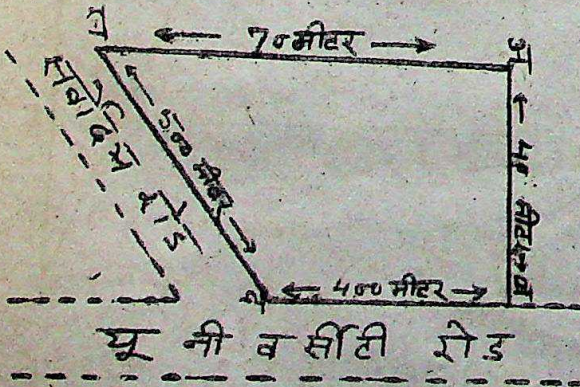 70 मीटर
अ
500 मीटर
40 मीटर
ब
400 मीटर
यू नी व र्सीटी रोड